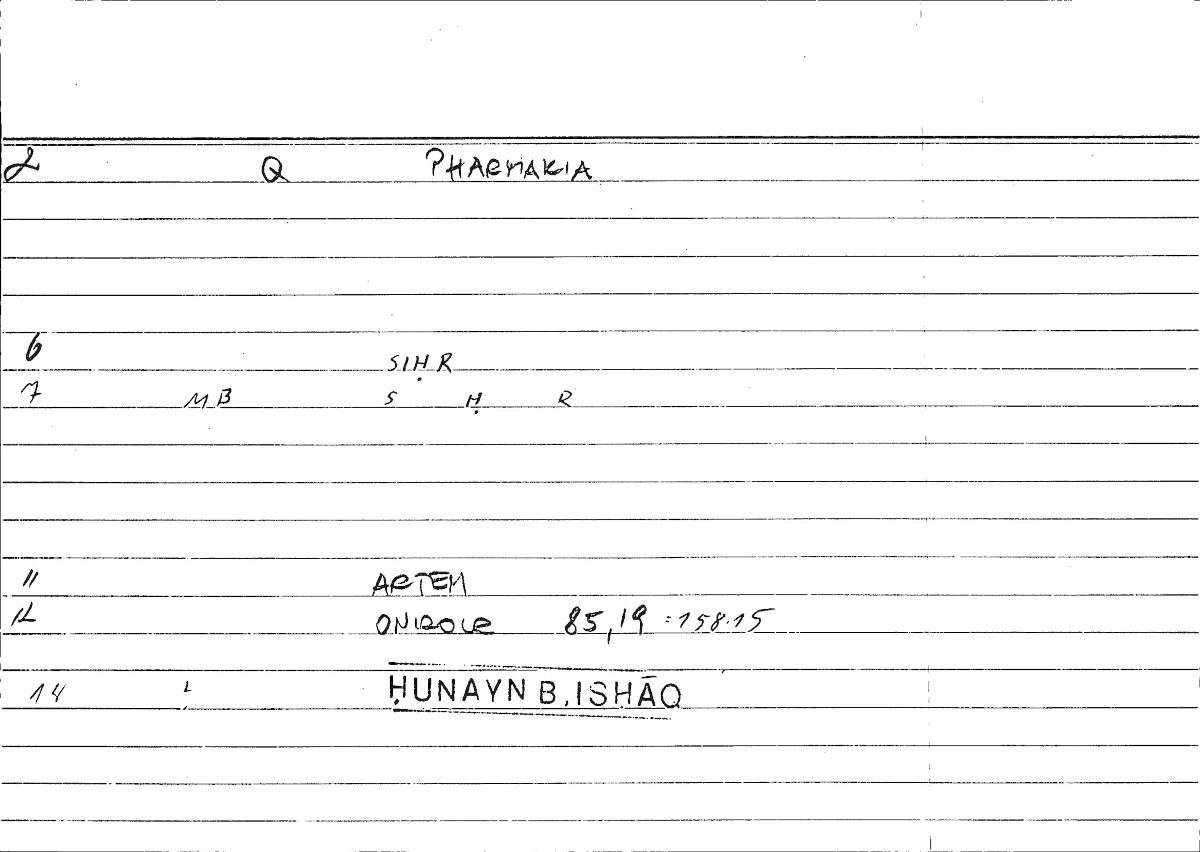 2 Q PHARMAKIA
6 SIḤR
7 MB S Ḥ R
11 ARTEM
12 ONIROCR 85,19 :158.15
14 ḤUNAYN B, ISḤĀQ